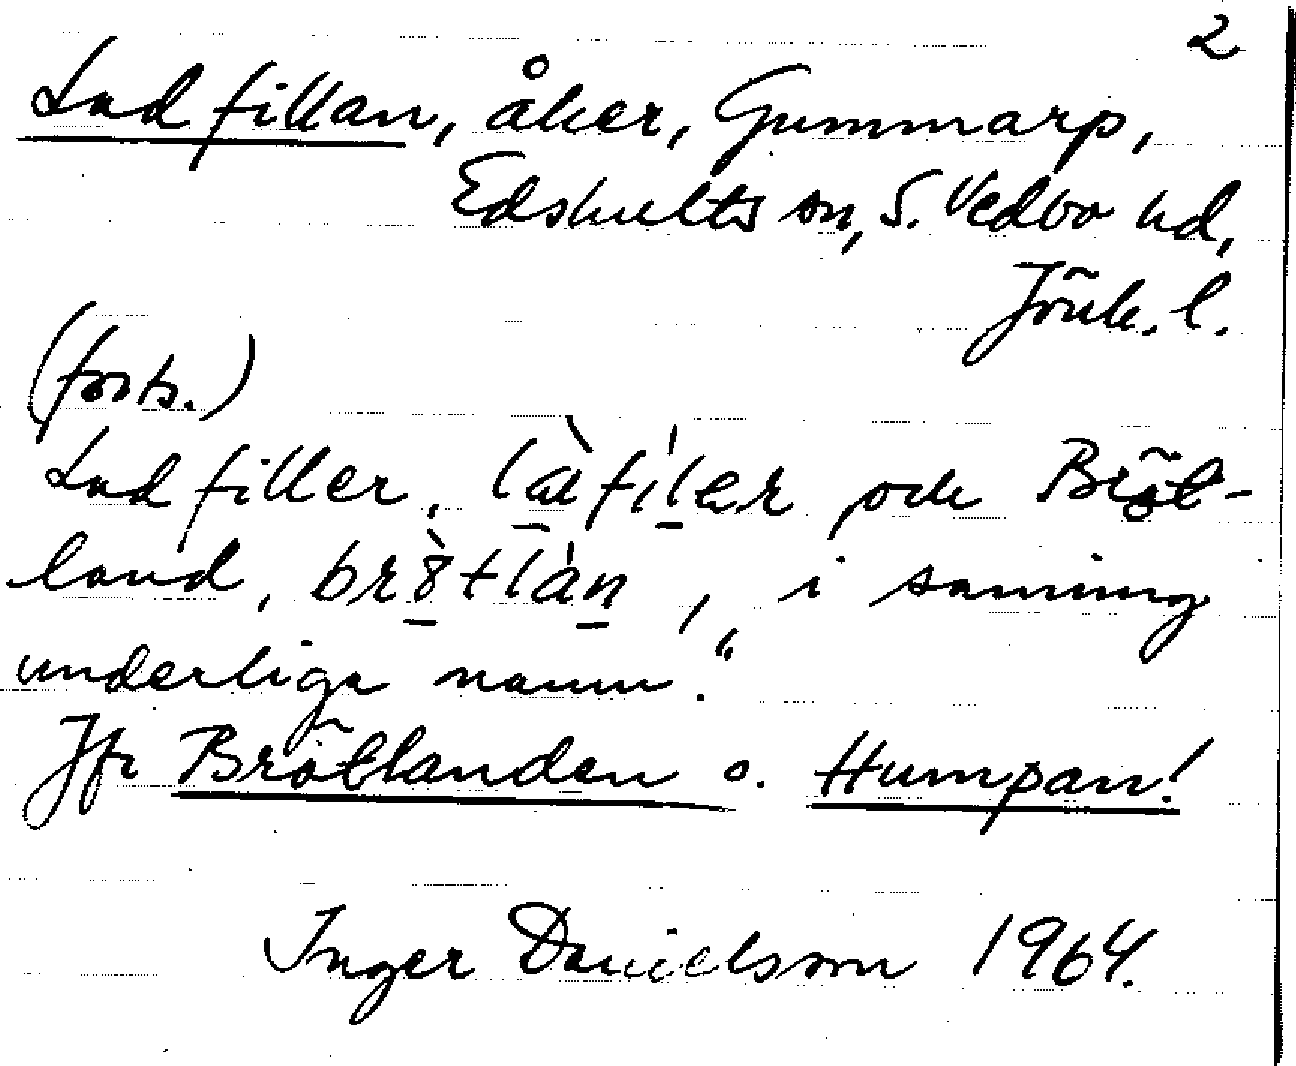 2
Ladfillan, åker, Gummarp,
Edshults sn, S. Vedbo hd,
Jönk. l.
(forts.)
Ladfiller, och Bröt-
land, i sanning
underliga namn."
Jfr Brötlanden o. Humpan!
Inger Danielsson 1964.